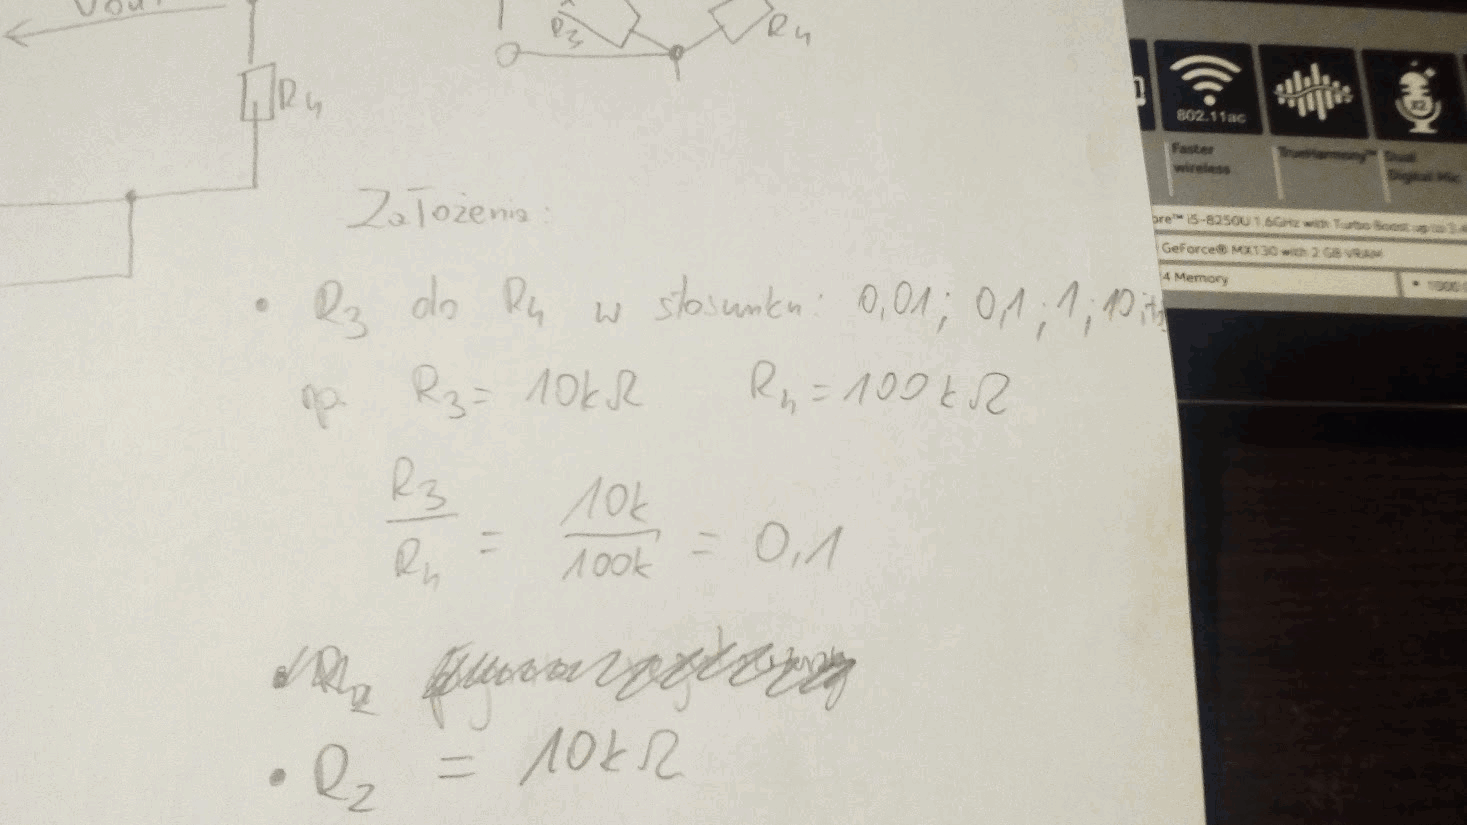 Vout
R3
R4
R4
Założenia:
• R3 do R4 w stosunku: 0,01; 0,1; 1; 10;
np. R3 = 10kΩ R4 = 100kΩ
R3/R4 = 10k/100k = 0,1
• R2 = 10kΩ
802.11ac
x2
Faster wireless
TrueHarmony™
Dual Digital Mic
ore™ i5-8250U 1.6GHz with Turbo Boost up to 3.4
GeForce® MX130 with 2 GB VRAM
4 Memory